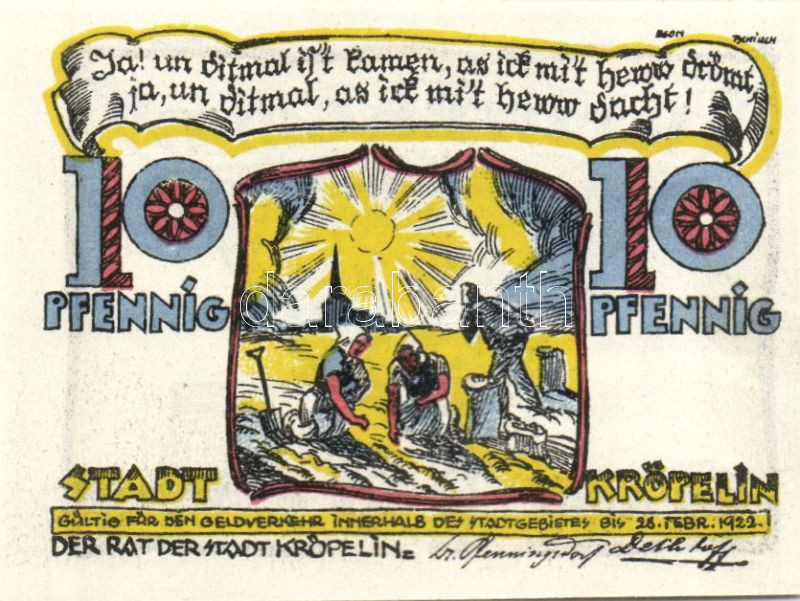 EGON TSCHIRCH
Ja! un ditmal is't kamen, as ick mi't heww drömt,
ja, un ditmal, as ick mi't heww dacht!
10 10
PFENNIG PFENNIG
darabanth
STADT KRÖPELIN
GÜLTIG FÜR DEN GELDVERKEHR INNERHALB DES STADTGEBIETES BIS 28. FEBR. 1922.
DER RAT DER STADT KRÖPELIN=